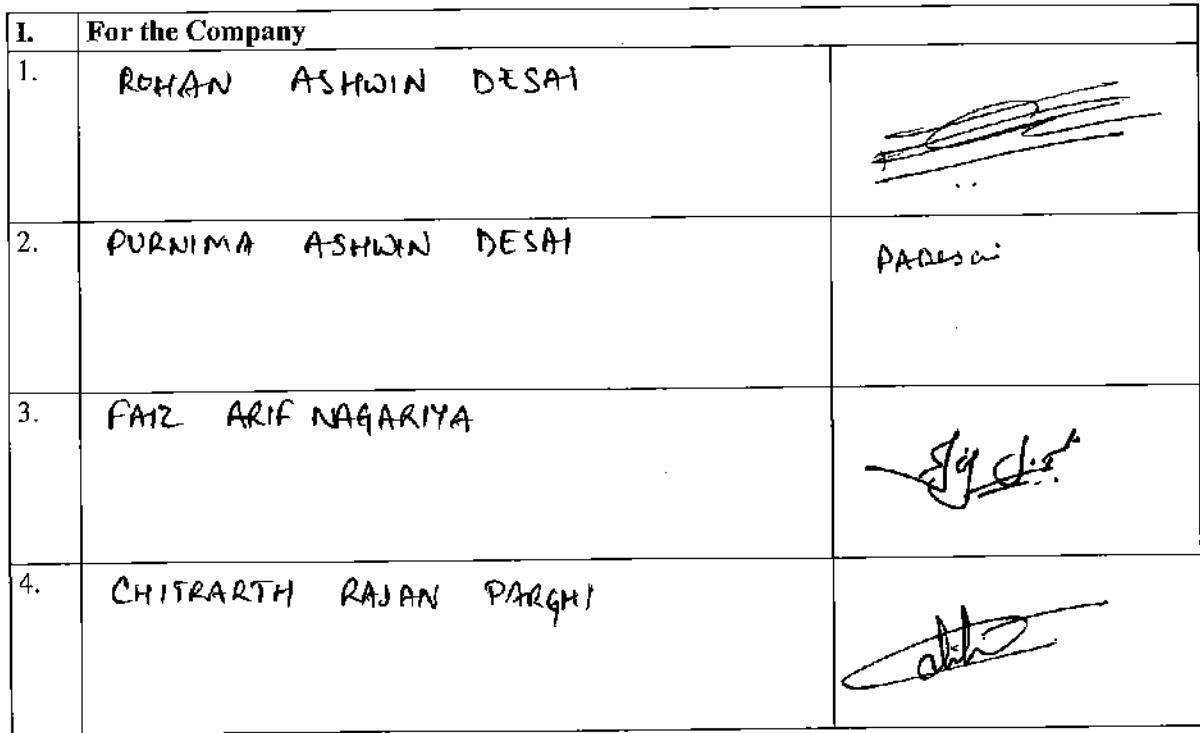 I. For the Company
1. ROHAN ASHWIN DESAI
2. PURNIMA ASHWIN DESAI PADesai
3. FAIZ ARIF NAGARIYA
4. CHITRARTH RAJAN PARGHI